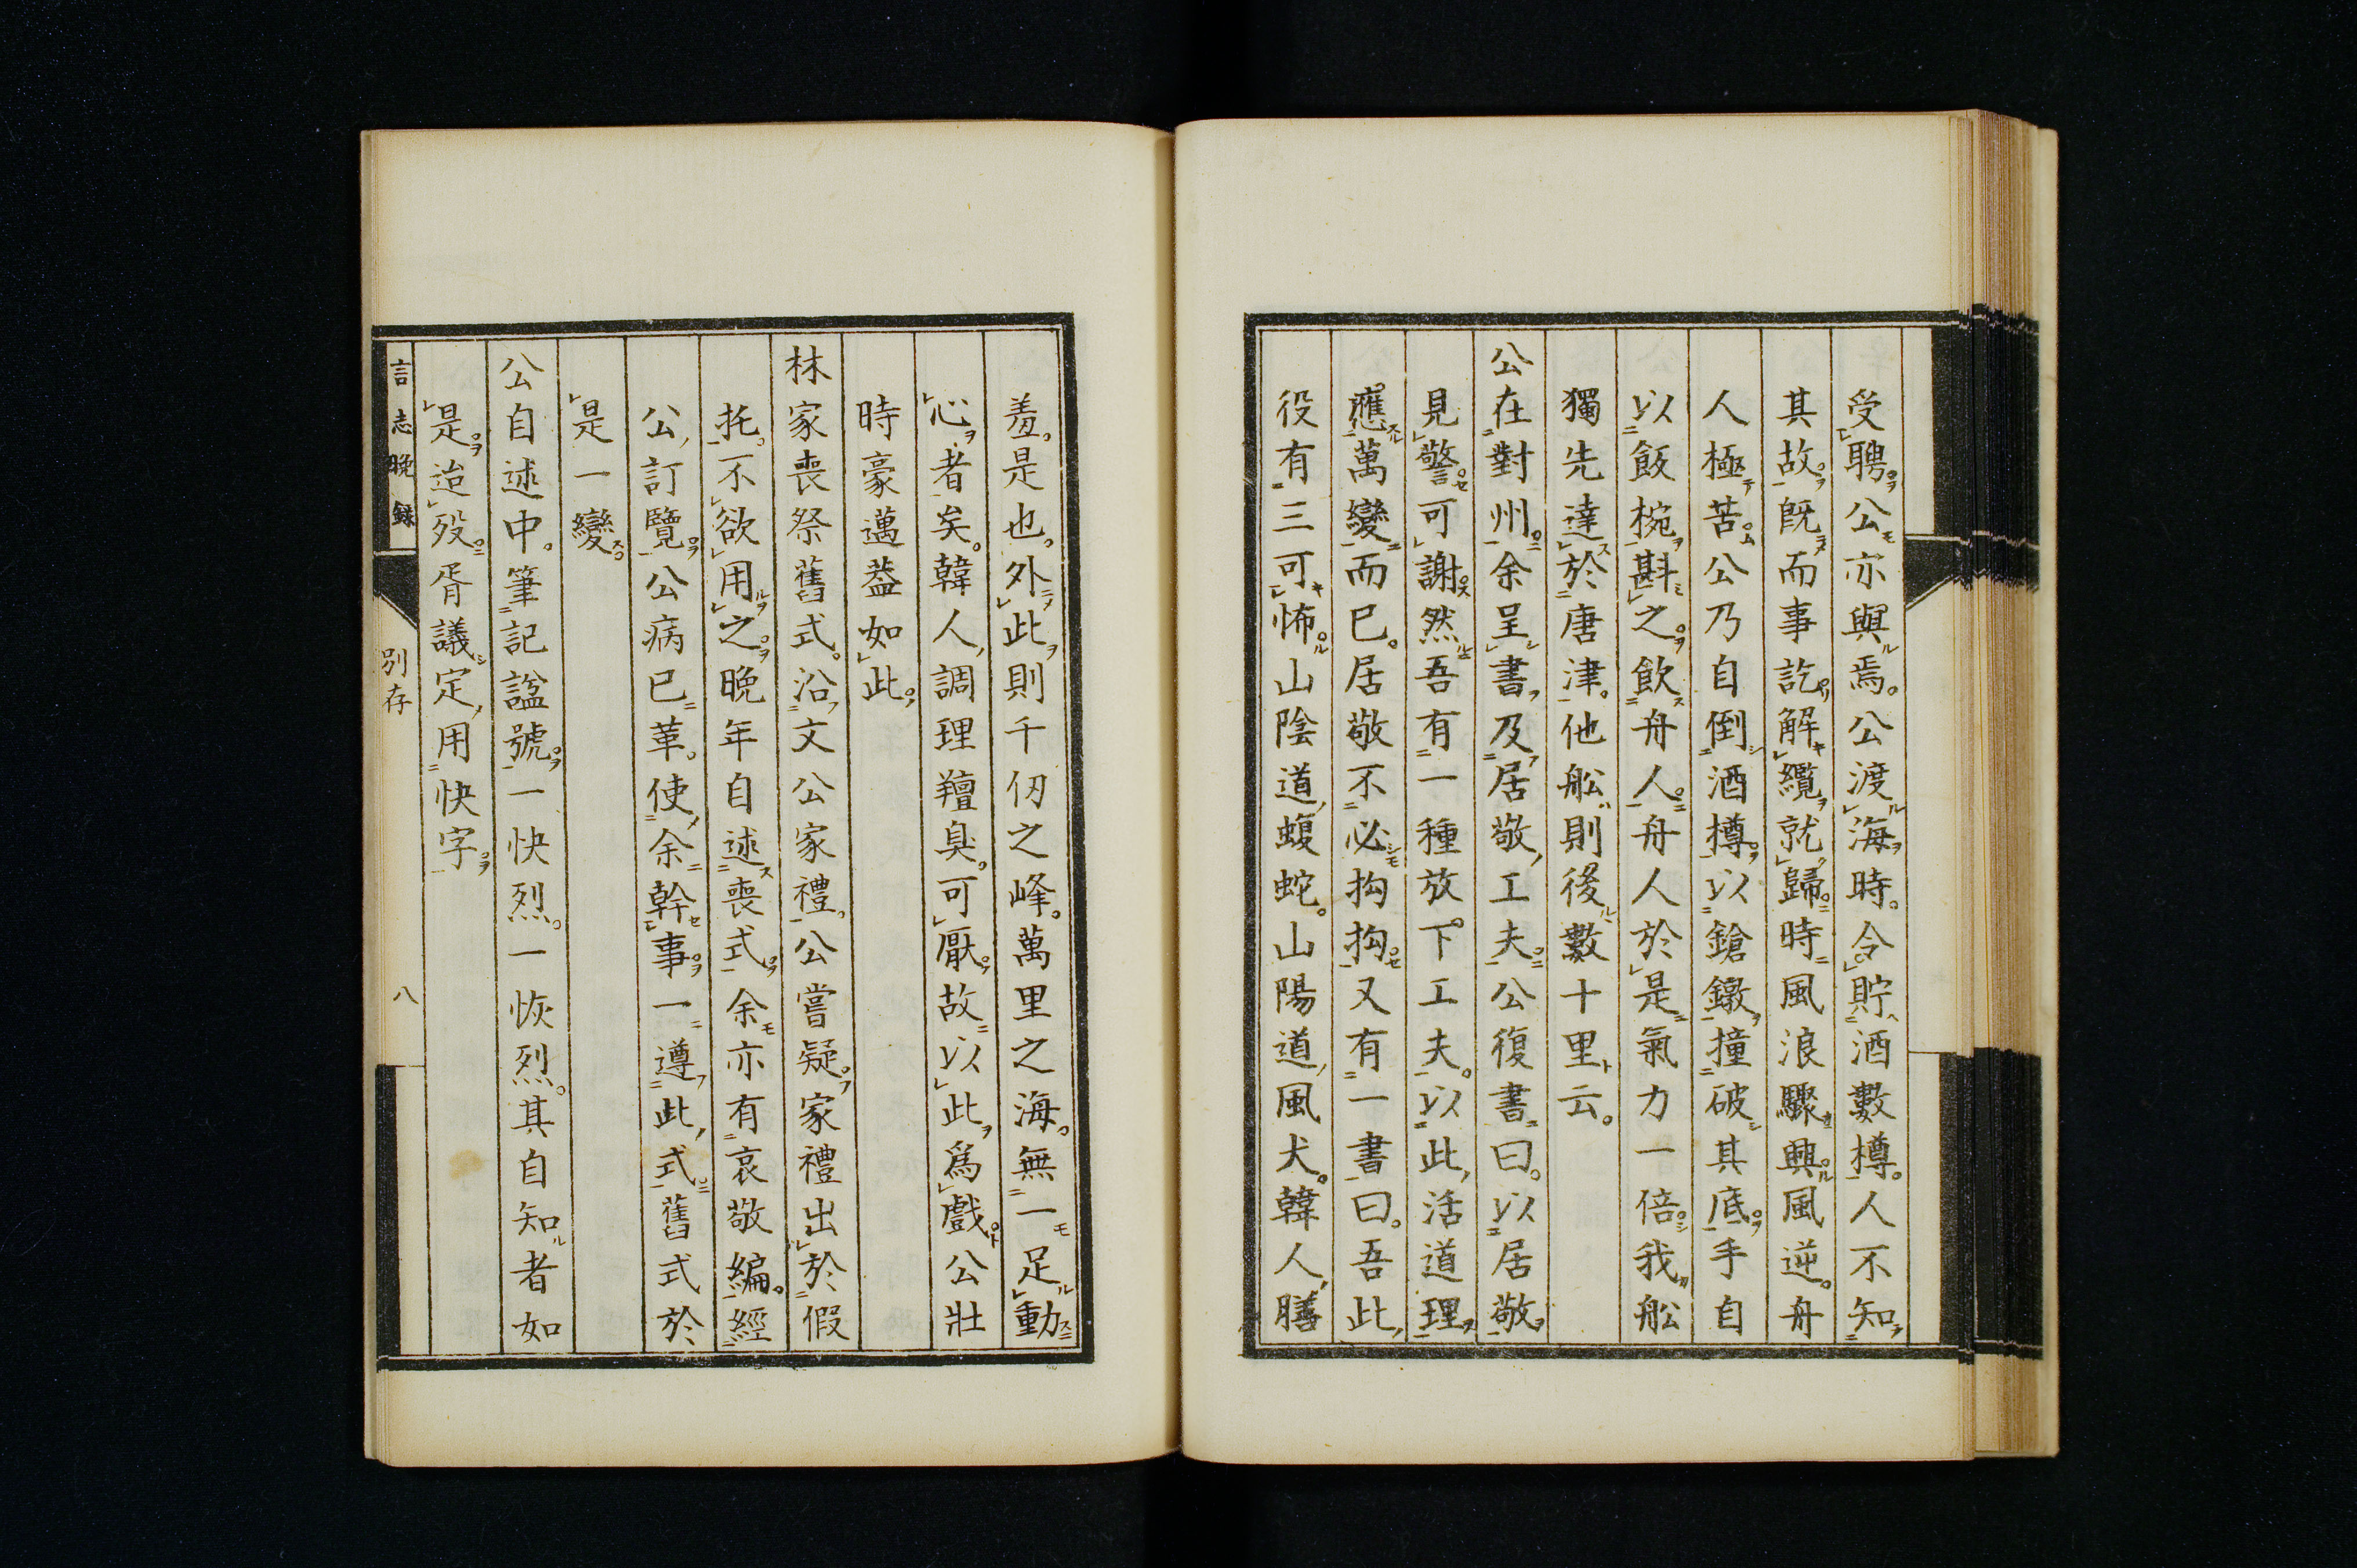 受聘公亦與焉。公渡海時。令貯酒數樽。人不知
其故既而事訖解纜就歸。時風浪驟興風逆。舟
人極苦公乃自倒酒樽以鎗鐓撞破其底手自
以飯椀斟之飲舟人舟人於是氣力一倍我舩
獨先達於唐津。他舩則後數十里云。
公在對州余呈書及居敬工夫公復書曰。以居敬
見警可謝然吾有一種放下工夫。以此活道理
應萬變而已。居敬不必拘拘又有一書曰。吾此
役有三可怖山陰道蝮蛇。山陽道風犬。韓人膳
羞。是也。外此則千仞之峰。萬里之海。無一足動
心者矣。韓人調理羶臭。可厭故以此爲戲公壯
時豪邁葢如此
林家喪祭舊式。沿文公家禮。公嘗疑家禮出於假
托。不欲用之晩年自述喪式余亦有哀敬編。經
公訂覽公病已革。使余幹事一遵此式舊式於
是一變
公自述中。筆記諡號一快烈。一恢烈。其自知者如
是迨歿胥議定用快字
言志晩録
別存
八